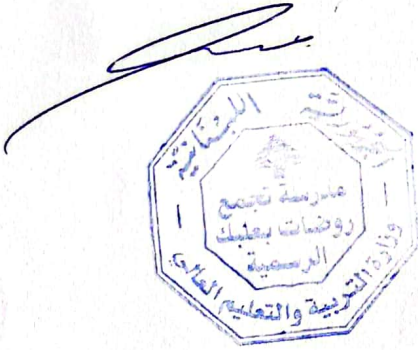 اللبنانية
مدرسة تجمع
روضات بعلبك
الرسمية
وزارة التربية والتعليم العالي